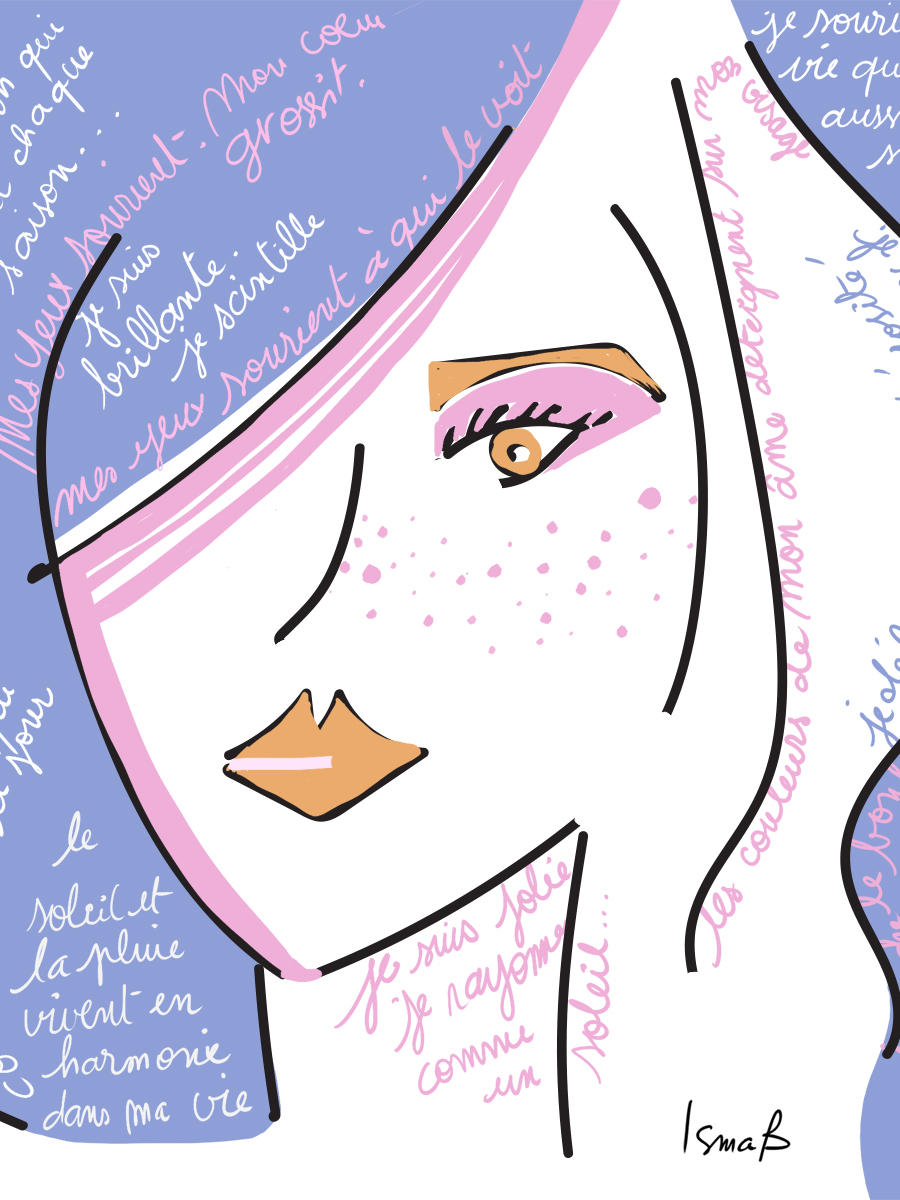 on qui
chaque
saison...
Mes yeux sourient. Mon coeur
grossit.
je suis
brillante.
je scintille
mes yeux sourient à qui le voit
je souri
vie qu
auss
les couleurs de mon âme déteignent sur mon
visage
je
jour
le
soleil et
la pluie
vivent en
harmonie
dans ma vie
je suis jolie
je rayonne
comme
un
soleil...
le bon
IsmaB